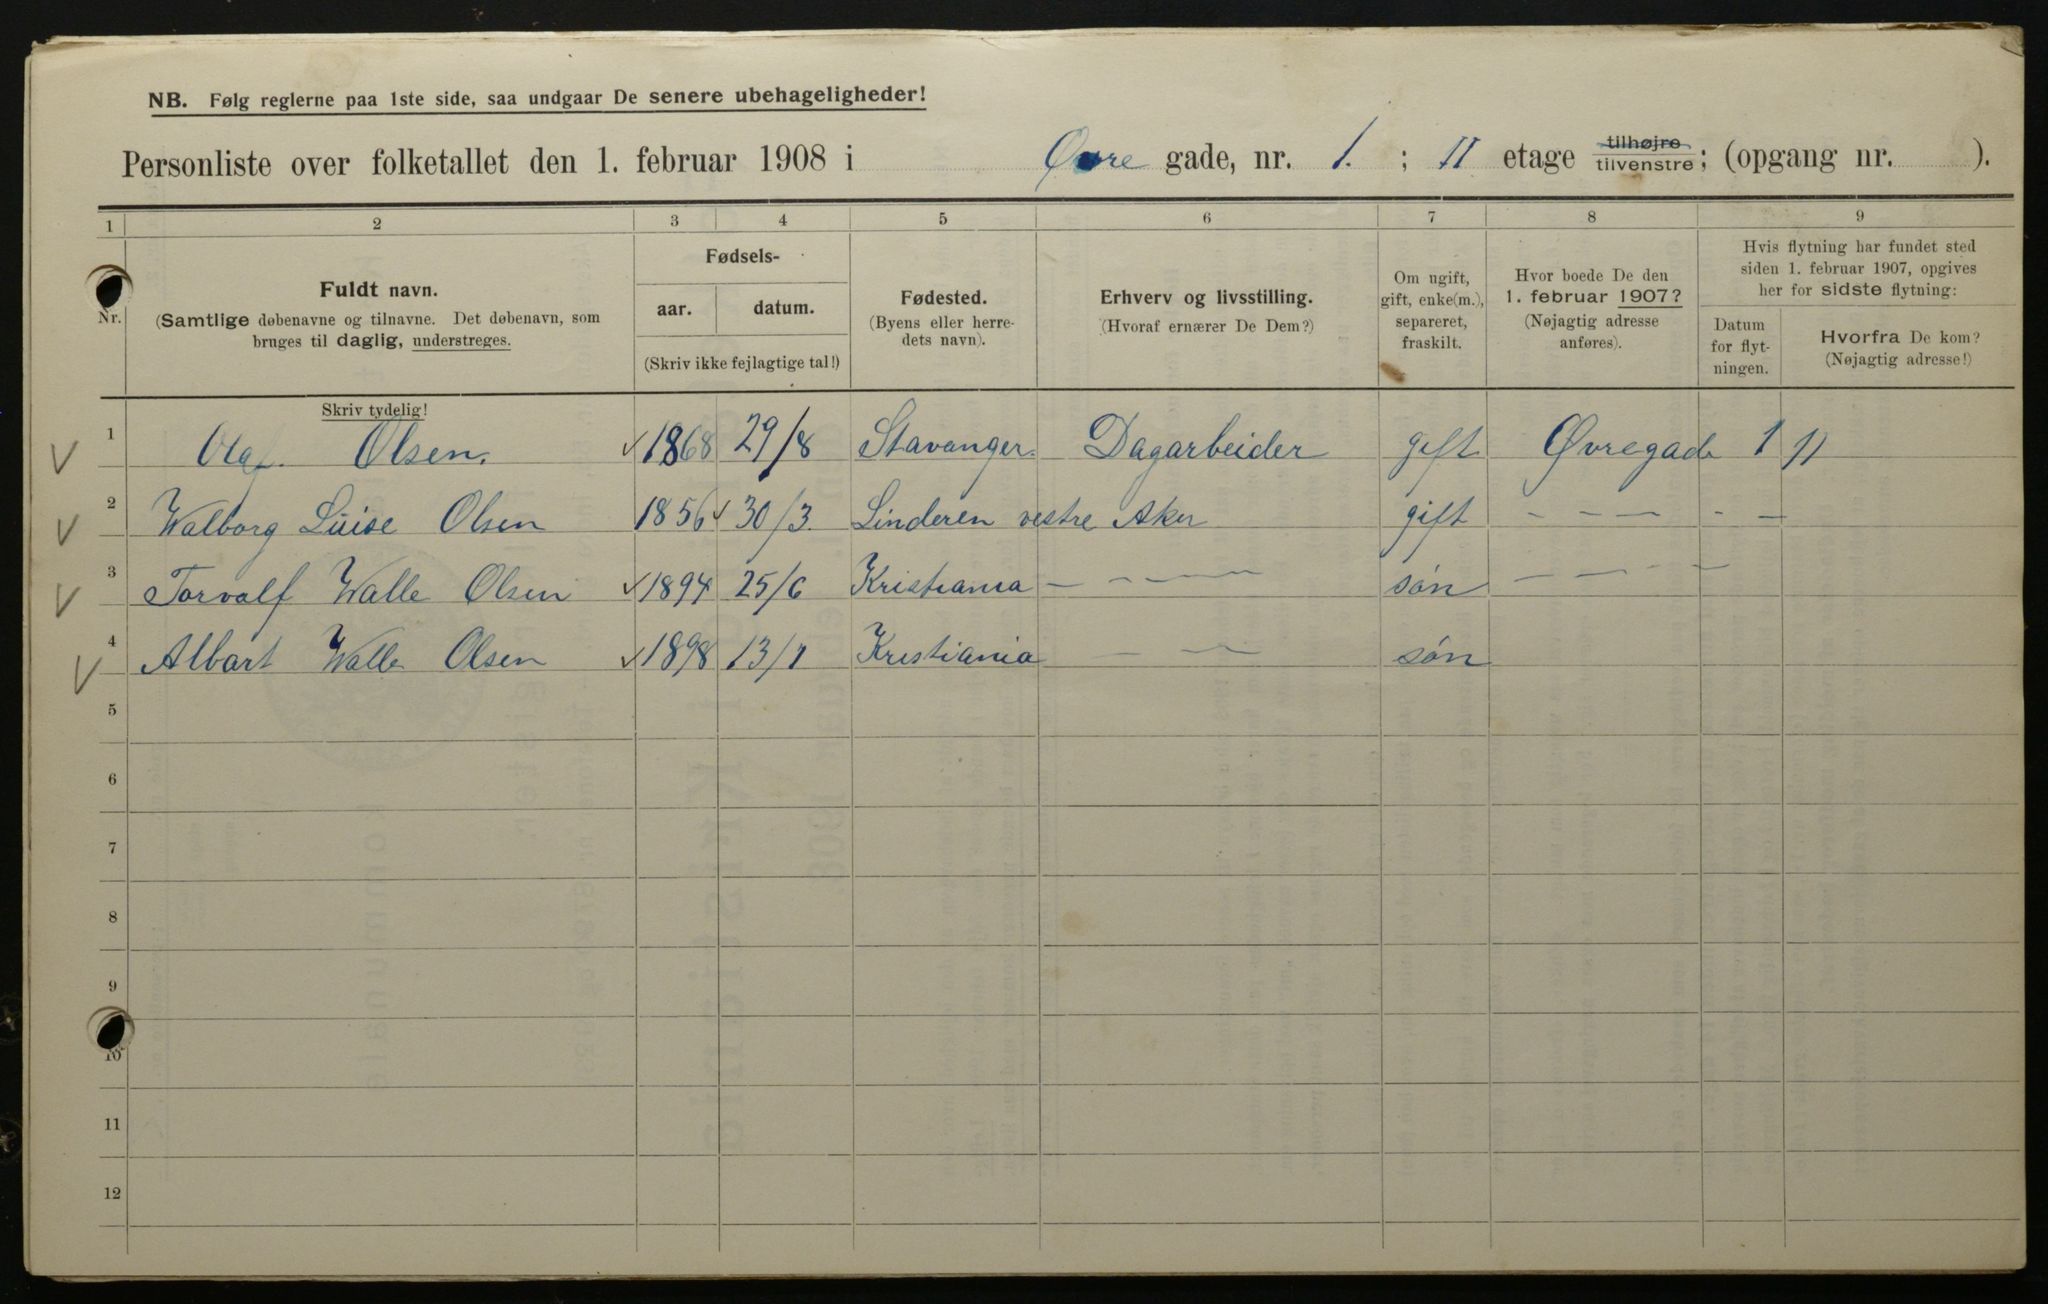 NB. Følg reglerne paa 1ste side, saa undgaar De senere ubehageligheder!
Personliste over folketallet den 1. februar 1908 i Øvre gade, nr. 1. ; II etage tilhøjre tilvenstre; (opgang nr. ).
1 2 3 4 5 6 7 8 9
Nr.
Fuldt navn.
(Samtlige døbenavne og tilnavne. Det døbenavn, som
bruges til daglig, understreges.
Skriv tydelig!
Fødsels-
aar. datum.
(Skriv ikke fejlagtige tal!)
Fødested.
(Byens eller herre-
dets navn).
Erhverv og livsstilling.
(Hvoraf ernærer De Dem?)
Om ngift,
gift, enke(m.),
separeret,
fraskilt.
Hvor boede De den
1. februar 1907?
(Nøjagtig adresse
anføres).
Hvis flytning har fundet sted
siden 1. februar 1907, opgives
her for sidste flytning:
Datum
for flyt-
ningen.
Hvorfra De kom?
(Nøjagtig adresse!)
1 Olaf. Olsen. 1868 29/8 Stavanger. Dagarbeider gift Øvregade 1 II
2 Walborg Luise Olsen 1856 30/3. Linderen vestre Aker gift - - - - -
3 Torvalf Walle Olsen 1894 25/6 Kristiania - - - - søn - - - -
4 Albart Walle Olsen 1898 13/1 Kristiania - - søn
5
6
7
8
9
10
11
12